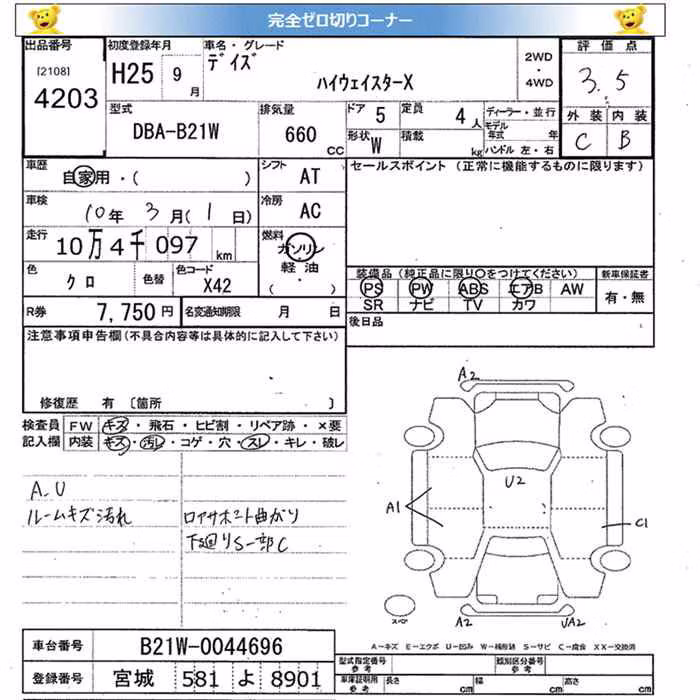 完全ゼロ切りコーナー
出品番号
[2108]
4203
初度登録年月
H25 9月
車名・グレード
デイズ
ハイウェイスターX
2WD
・
4WD
評価点
3.5
外装 内装
C B
型式
DBA-B21W
排気量
660 CC
ドア 5
形状 W
定員 4人
積載 kg
ディーラー・並行
モデル年式 年
ハンドル 左・右
車歴
自家用・( )
シフト
AT
セールスポイント (正常に機能するものに限ります)
車検
10年 3月(1日)
冷房
AC
走行
10万4千097 km
燃料
ガソリン
軽油
(・)
色
クロ
色替
色コード
X42
装備品 (純正品に限り○をつけてください)
PS PW ABS エアB AW
SR ナビ TV カワ
新車保証書
有・無
R券 7,750円
名変通知期限 月 日
後日品
注意事項申告欄 (不具合内容等は具体的に記入して下さい)
修復歴 有 〔箇所 〕
検査員記入欄
FW キズ・飛石・ヒビ割・リペア跡・×要
内装 キズ・汚レ・コゲ・穴・スレ・キレ・破レ
A.U
ルームキズ汚れ
ロアサポート曲がり
下回りS一部C
A2
U2
A1
C1
スペア
A2
UA2
A-キズ E-エクボ U-凹み W-補修跡 S-サビ C-腐食 XX-交換済
車台番号 B21W-0044696
登録番号 宮城 581 よ 8901
型式指定番号 参考
類別区分番号 参考
車庫証明用 参考
長さ cm
幅 cm
高さ cm